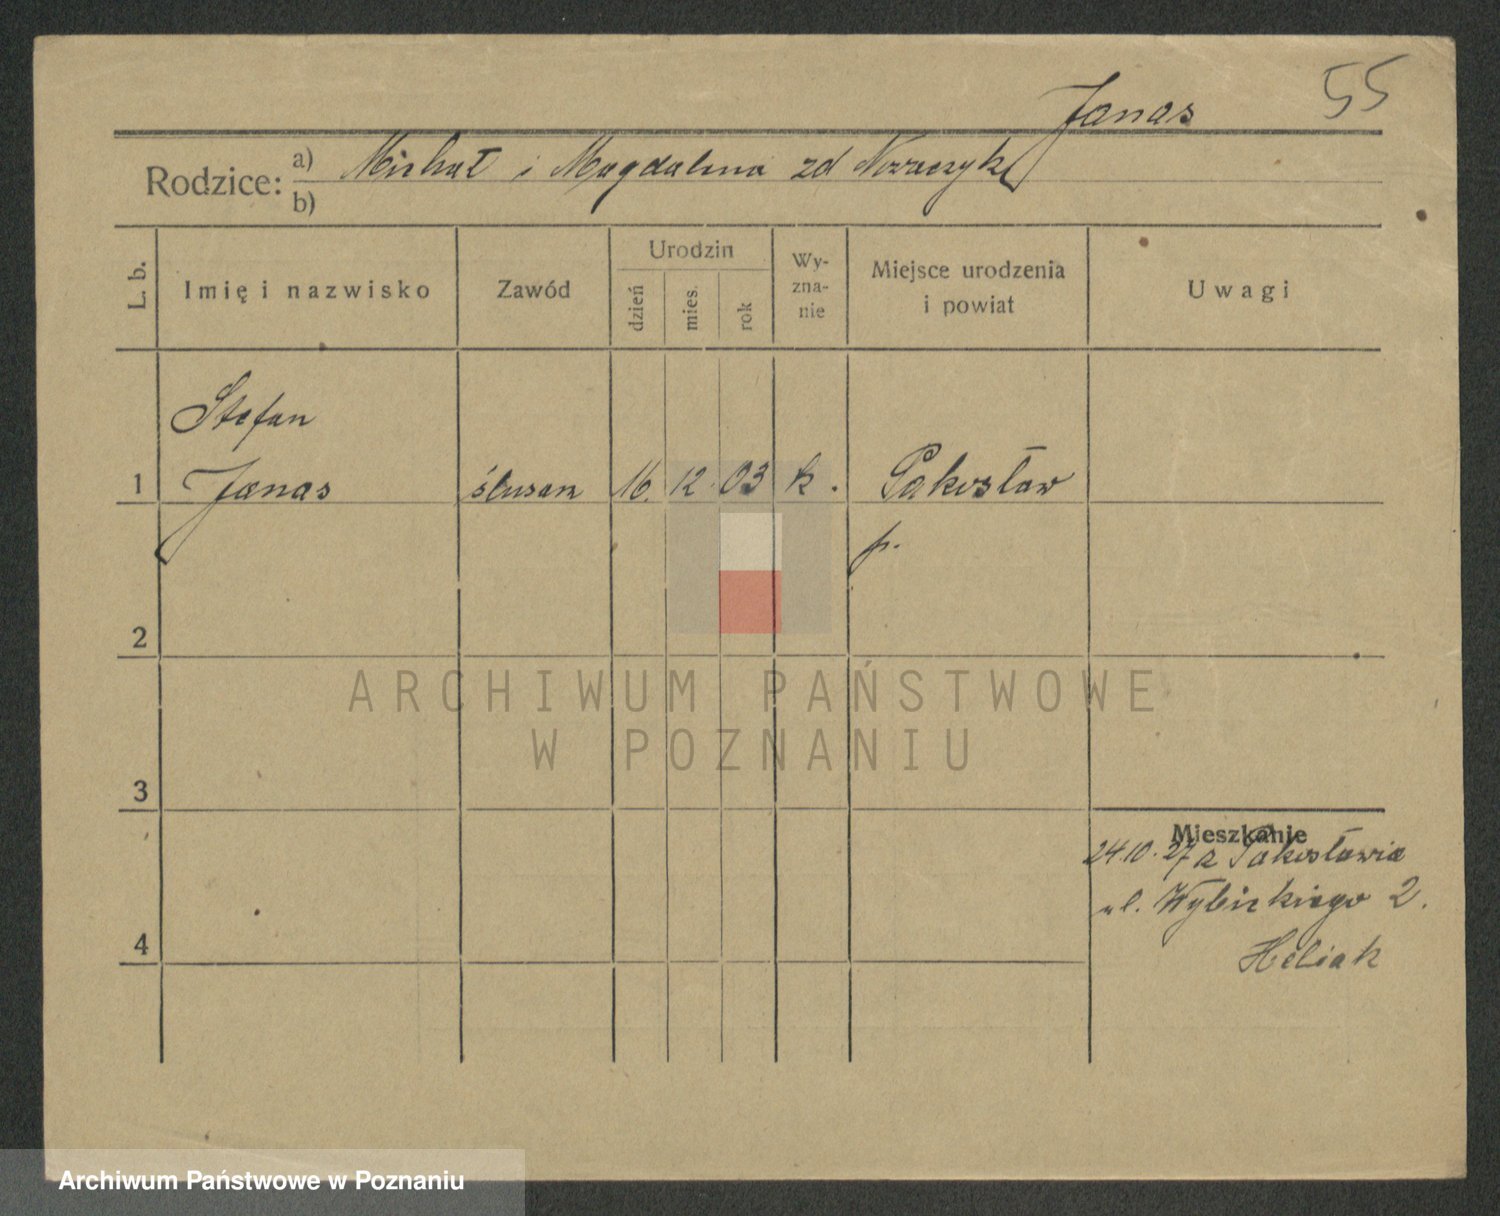 55
Janas
Rodzice: a) Michał i Magdalena zd
b)
L. b.
Imię i nazwisko
Zawód
Urodzin
dzień
mies.
rok
Wy-
zna-
nie
Miejsce urodzenia
i powiat
Uwagi
Stefan
1 Janas ślusarz 16. 12. 03 k. Pakosław
p.
2
3
4
Mieszkanie
24.10.27 z Pakosławia
ul. Wybickiego 2.
Heliak
ARCHIWUM PAŃSTWOWE
W POZNANIU
Archiwum Państwowe w Poznaniu